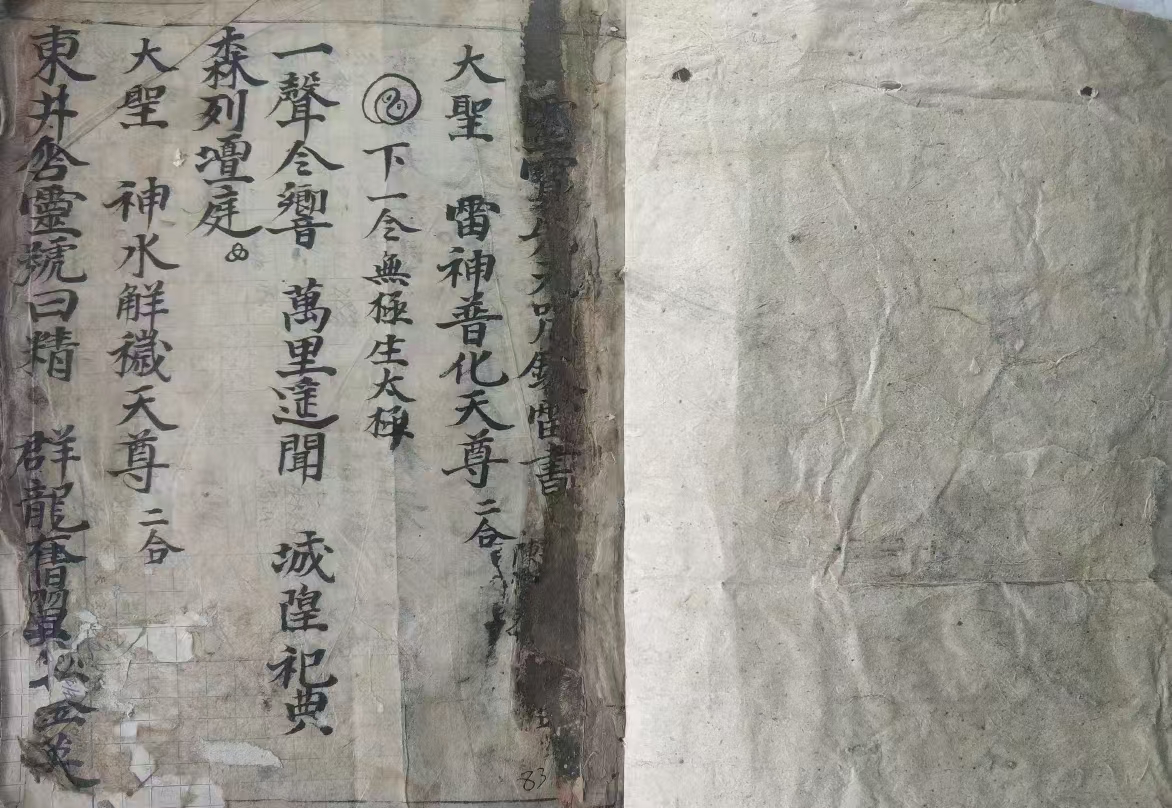 靈寶先天咒鎮雷書
大聖 雷神普化天尊 二合
下一令無極生太極
一聲令響 萬里遥聞 城隍祀典
森列壇庭
大聖 神水解穢天尊 二合
東井含靈號曰精 群龍奮翼
83